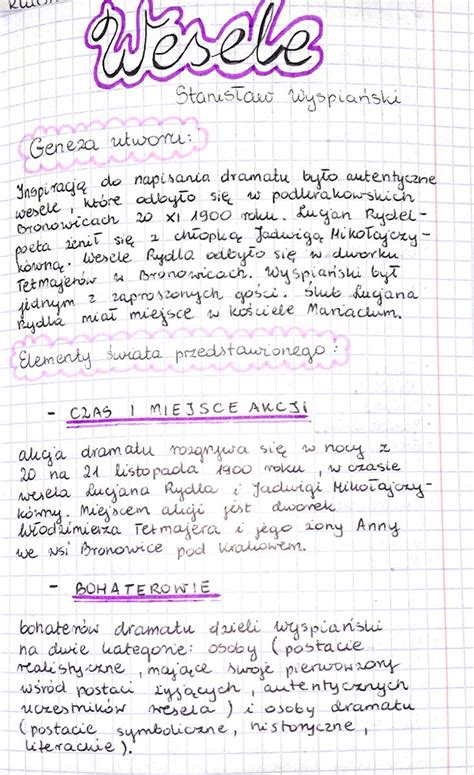 Wesele
Stanisław Wyspiański
Geneza utworu:
Inspiracją do napisania dramatu było autentyczne
wesele, które odbyło się w podkrakowskich
Bronowicach 20 XI 1900 roku. Lucjan Rydel-
poeta żenił się z chłopką Jadwigą Mikołajczy-
kówną. Wesele Rydla odbyło się w dworku
Tetmajerów w Bronowicach. Wyspiański był
jednym z zaproszonych gości. Ślub Lucjana
Rydla miał miejsce w kościele Mariackim.
Elementy świata przedstawionego:
- CZAS I MIEJSCE AKCJI
akcja dramatu rozgrywa się w nocy z
20 na 21 listopada 1900 roku, w czasie
wesela Lucjana Rydla i Jadwigi Mikołajczy-
kówny. Miejscem akcji jest dworek
Włodzimierza Tetmajera i jego żony Anny
we wsi Bronowice pod Krakowem.
- BOHATEROWIE
bohaterów dramatu dzieli Wyspiański
na dwie kategorie: osoby (postacie
realistyczne, mające swoje pierwowzory
wśród postaci żyjących, autentycznych
uczestników wesela) i osoby dramatu
(postacie symboliczne, historyczne,
literackie).